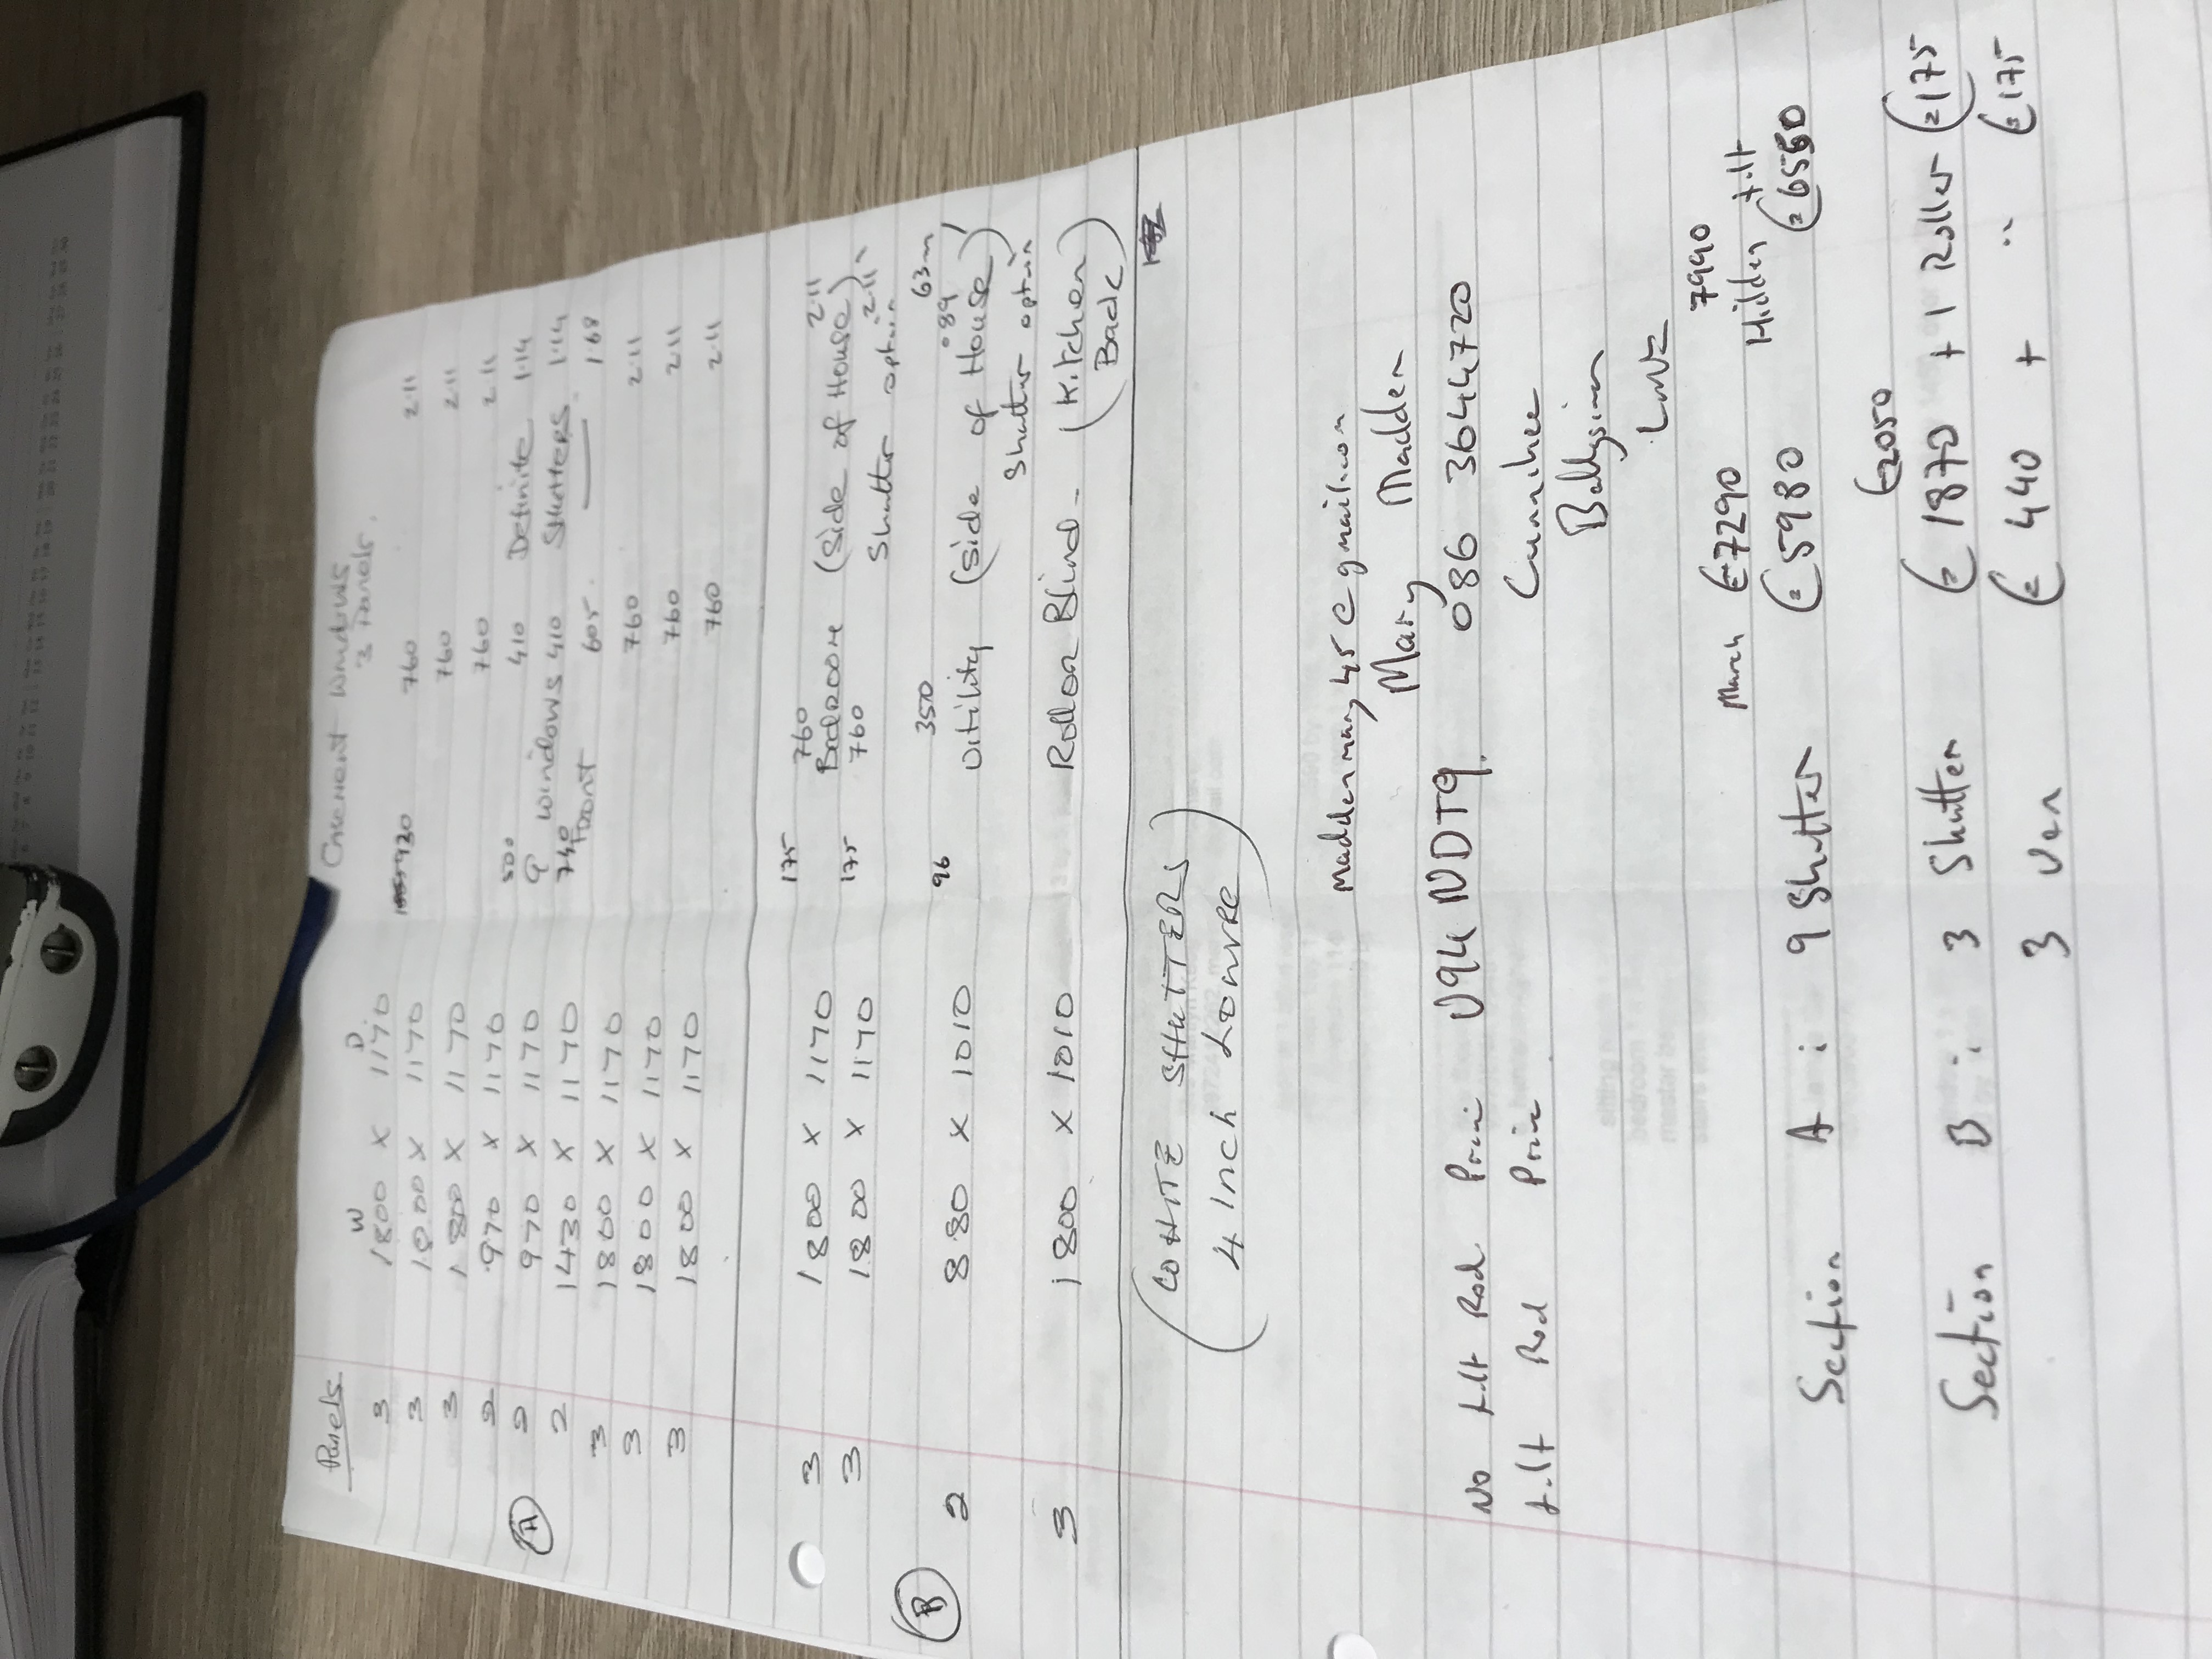 Casement Windows
Panels W D 3 Panels.
3 1800 x 1170 930 760 2.11
3 1800 x 1170 760 2.11
3 1800 x 1170 760 2.11
2 970 x 1170 500 410 Definite 1.14
(A) 2 970 x 1170 9 windows 410 SHUTTERS 1.14
2 1430 x 1170 740 Front 605. 1.68
3 1800 x 1170 760 2.11
3 1800 x 1170 760 2.11
3 1800 x 1170 760 2.11
3 1800 x 1170 175 760 Bedroom (Side of House) 2.11
3 1800 x 1170 175 760 Shutter option 2.11
96 3500 .89 63m
(B) 2 880 x 1010 Utility (side of House)
Shutter option
3 1800 x 1010 Roller Blind - (Kitchen
Back)
(WHITE SHUTTERS)
4 Inch Louvre
maddermary45@gmail.com
Mary Madden
No tilt Rod Price V94 NDT9. 086 3644720
tilt Rod Price
Ballysimon
Lmk
7990
March €7290 Hidden tilt
Section A : 9 Shutter (€5980 (€6550
€2050
Section B : 3 Shutter (€1870 + 1 Roller (€175)
3 Ven (€440 + .. (€175